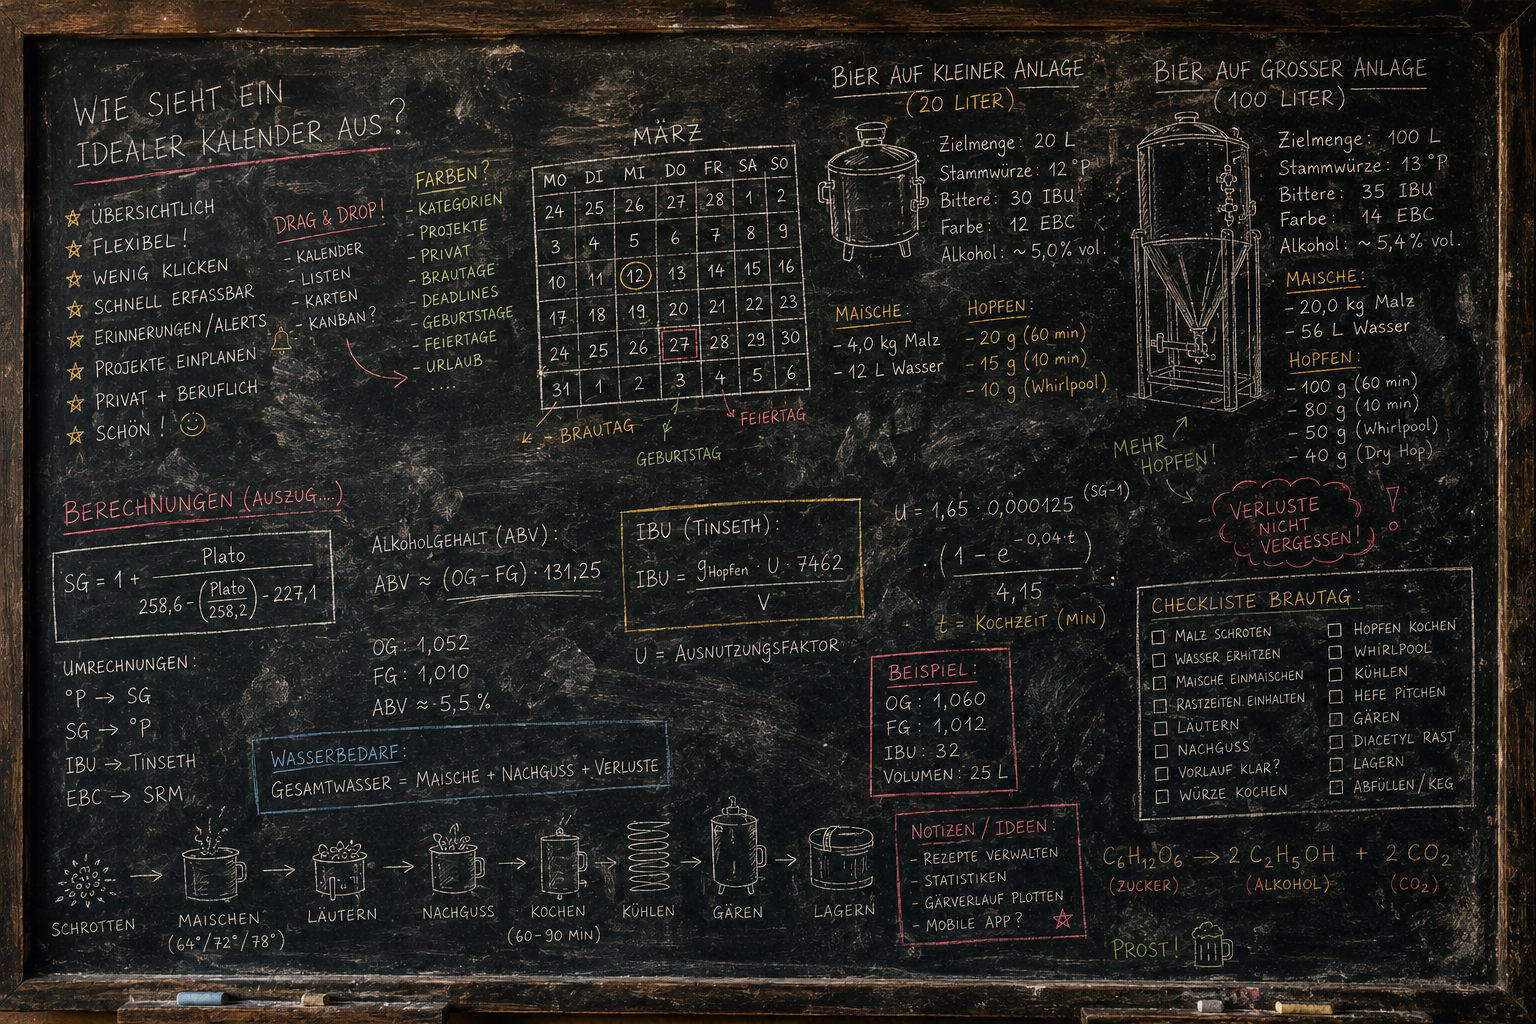 WIE SIEHT EIN
IDEALER KALENDER AUS?
☆ ÜBERSICHTLICH
☆ FLEXIBEL!
☆ WENIG KLICKEN
☆ SCHNELL ERFASSBAR
☆ ERINNERUNGEN/ALERTS
☆ PROJEKTE EINPLANEN
☆ PRIVAT + BERUFLICH
☆ SCHÖN! ☺
DRAG & DROP!
- KALENDER
- LISTEN
- KARTEN
- KANBAN?
FARBEN?
- KATEGORIEN
- PROJEKTE
- PRIVAT
- BRAUTAGE
- DEADLINES
- GEBURTSTAGE
- FEIERTAGE
- URLAUB
....
MÄRZ
MO DI MI DO FR SA SO
24 25 26 27 28 1 2
3 4 5 6 7 8 9
10 11 12 13 14 15 16
17 18 19 20 21 22 23
24 25 26 27 28 29 30
31 1 2 3 4 5 6
- BRAUTAG
GEBURTSTAG
FEIERTAG
BIER AUF KLEINER ANLAGE
(20 LITER)
Zielmenge: 20 L
Stammwürze: 12 °P
Bittere: 30 IBU
Farbe: 12 EBC
Alkohol: ~ 5,0% vol.
MAISCHE:
- 4,0 kg Malz
- 12 L Wasser
HOPFEN:
- 20 g (60 min)
- 15 g (10 min)
- 10 g (Whirlpool)
BIER AUF GROSSER ANLAGE
(100 LITER)
Zielmenge: 100 L
Stammwürze: 13 °P
Bittere: 35 IBU
Farbe: 14 EBC
Alkohol: ~ 5,4% vol.
MAISCHE:
- 20,0 kg Malz
- 56 L Wasser
HOPFEN:
- 100 g (60 min)
- 80 g (10 min)
- 50 g (Whirlpool)
- 40 g (Dry Hop)
MEHR
HOPFEN!
VERLUSTE
NICHT
VERGESSEN!
!
BERECHNUNGEN (AUSZUG....)
SG = 1 + Plato / 258,6 - (Plato / 258,2) - 227,1
UMRECHNUNGEN:
°P → SG
SG → °P
IBU → TINSETH
EBC → SRM
ALKOHOLGEHALT (ABV):
ABV ≈ (OG - FG) · 131,25
OG: 1,052
FG: 1,010
ABV ≈ 5,5 %
IBU (TINSETH):
IBU = gHopfen · U · 7462 / V
U = AUSNUTZUNGSFAKTOR
U = 1,65 · 0,000125 (SG-1)
· (1 - e -0,04·t)
4,15
t = KOCHZEIT (MIN)
BEISPIEL:
OG: 1,060
FG: 1,012
IBU: 32
VOLUMEN: 25 L
WASSERBEDARF:
GESAMTWASSER = MAISCHE + NACHGUSS + VERLUSTE
CHECKLISTE BRAUTAG:
☐ MALZ SCHROTEN
☐ WASSER ERHITZEN
☐ MAISCHE EINMAISCHEN
☐ RASTZEITEN EINHALTEN
☐ LÄUTERN
☐ NACHGUSS
☐ VORLAUF KLAR?
☐ WÜRZE KOCHEN
☐ HOPFEN KOCHEN
☐ WHIRLPOOL
☐ KÜHLEN
☐ HEFE PITCHEN
☐ GÄREN
☐ DIACETYL RAST
☐ LAGERN
☐ ABFÜLLEN/KEG
SCHROTTEN
MAISCHEN
(64°/72°/78°)
LÄUTERN
NACHGUSS
KOCHEN
(60-90 MIN)
KÜHLEN
GÄREN
LAGERN
NOTIZEN / IDEEN:
- REZEPTE VERWALTEN
- STATISTIKEN
- GÄRVERLAUF PLOTTEN
- MOBILE APP? ☆
C₆H₁₂O₆ → 2 C₂H₅OH + 2 CO₂
(ZUCKER) (ALKOHOL) (CO₂)
PROST!